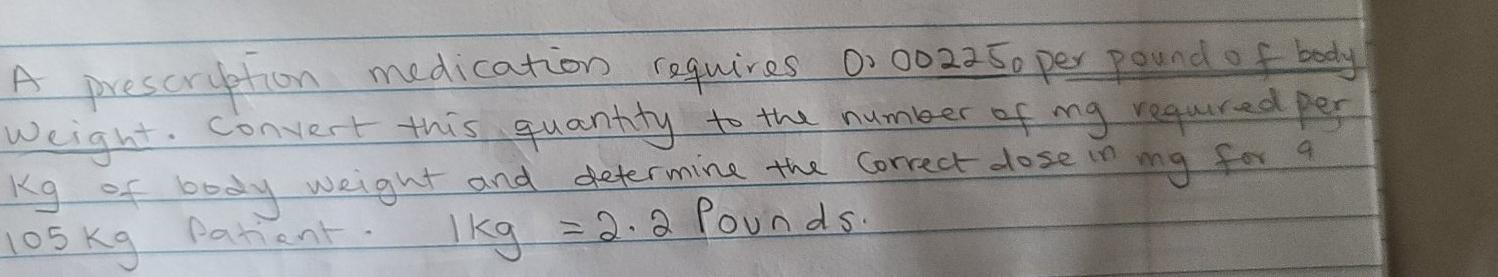 A prescription medication requires 0.00225o per pound of body
weight. Convert this quantity to the number of mg required per
Kg of body weight and determine the correct dose in mg for a
105 Kg Patient. 1kg = 2.2 Pounds.